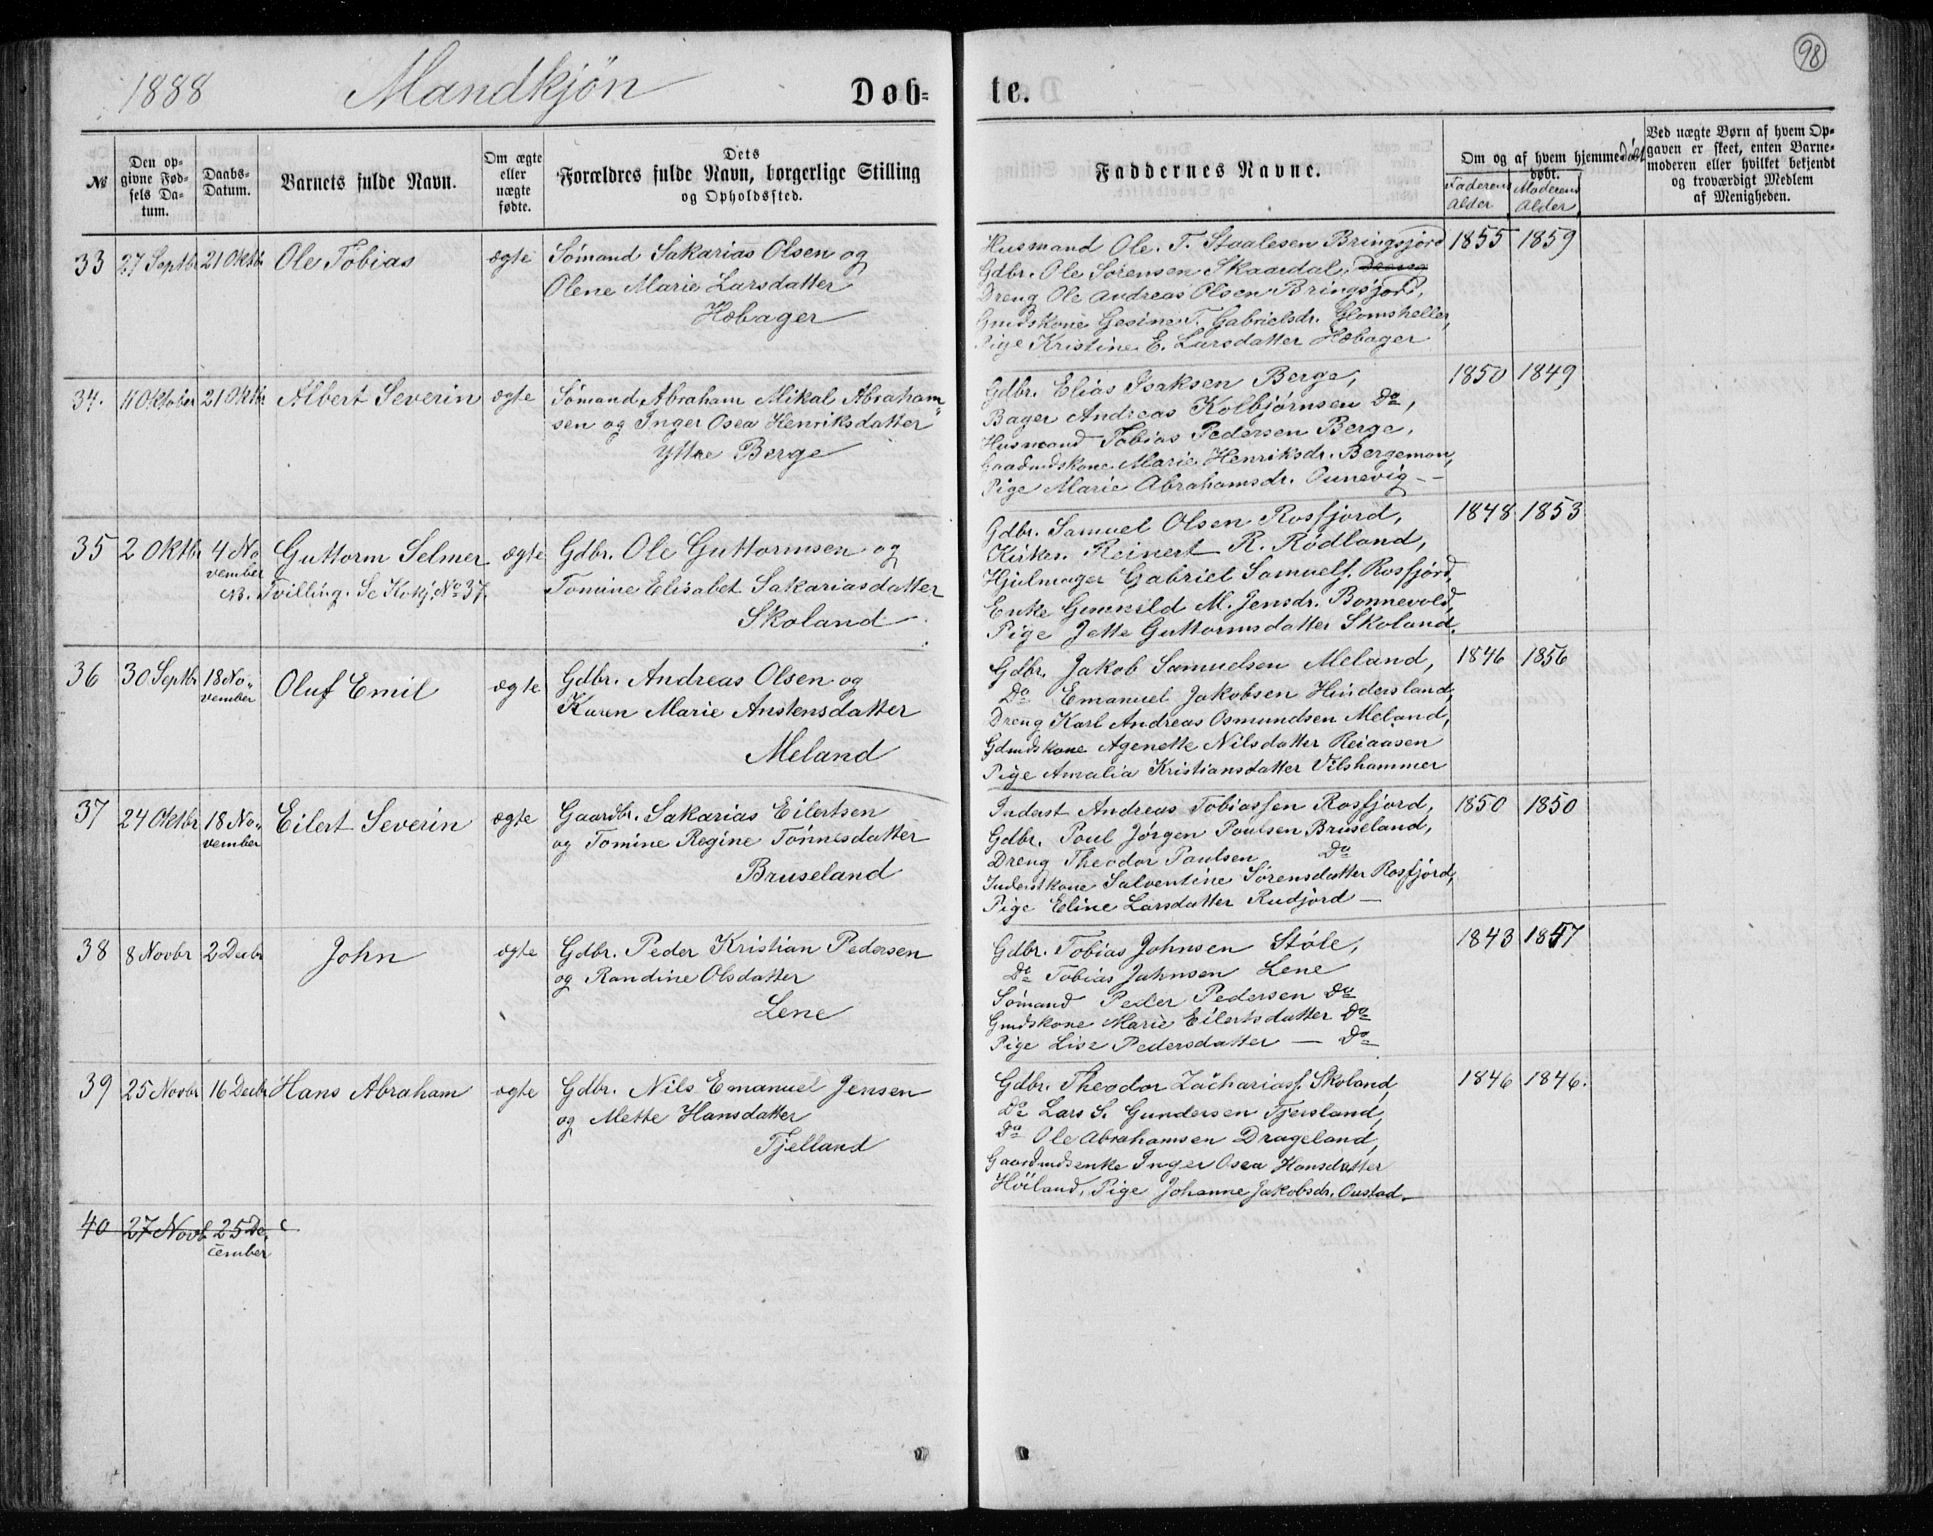 98
1888 Mandkjøn Døb- te.
№
Den op-
givne Fød-
sels Da-
tum.
Daabs-
Datum.
Barnets fulde Navn.
Om ægte
eller
uægte
fødte.
Dets
Forældres fulde Navn, borgerlige Stilling
og Opholdssted.
Faddernes Navne.
Om og af hvem hjemmedøbt
døbt.
Faderens
Alder
Moderens
Alder
Ved uægte Børn af hvem Op-
gaven er skeet, enten Barne-
moderen eller hvilket bekjendt
og troværdigt Medlem
af Menigheden.
33 27 Septbr 21 Oktbr Ole Tobias ægte
Sømand Sakarias Olsen og
Olene Marie Larsdatter
Høbager
Husmand Ole. T. Staalesen Bringsjord
Gdbr. Ole Sørensen Skaardal,
Dreng Ole Andreas Olsen Bringsjord,
Gmdskone Gesine T. Gabrielsdr. Glomsheller,
Pige Kristine E. Larsdatter Høbager
1855 1859
34. 11 Oktober 21 Oktbr Albert Severin ægte
Sømand Abraham Mikal Abraham-
sen og Inger Osea Henriksdatter
Yttre Berge
Gdbr. Elias Isaksen Berge,
Bager Andreas Kolbjørnsen Do,
Husmand Tobias Pedersen Berge,
Gaardmdskone Marie Henriksdr. Bergemon,
Pige Marie Abrahamsdr. Ounevig -
1850 1849
35 2 Oktbr 4 No
vember
Guttorm Selmer ægte
NB. Tvilling. Se Kvkj. No 37.
Gdbr. Ole Guttormsen og
Tomine Elisabet Sakariasdatter
Skoland
Gdbr. Samuel Olsen Rosfjord,
Kirkes. Reinert R. Rødland,
Hjulmager Gabriel Samuels. Rosfjord,
Enke Gunnild M. Jensdr. Bonnevold,
Pige Jette Guttormsdatter Skoland.
1848 1853
36 30 Septbr 18 No-
vember
Oluf Emil ægte
Gdbr. Andreas Olsen og
Karen Marie Anstensdatter
Meland
Gdbr. Jakob Samuelsen Meland,
Do Emanuel Jakobsen Hindersland,
Dreng Karl Andreas Osmundsen Meland,
Gdmdskone Agenette Nilsdatter Reiaasen
Pige Amalia Kristiansdatter Vilshammer
1846 1856
37 24 Oktbr 18 No-
vember
Eilert Severin ægte
Gaardbr. Sakarias Eilertsen
og Tomine Regine Tønnesdatter
Bruseland
Inderst Andreas Tobiassen Rosfjord,
Gdbr. Poul Jørgen Poulsen Bruseland,
Dreng Theodor Paulsen Do
Inderstkone Salventine Sørensdatter Rosfjord,
Pige Eline Larsdatter Rudjord —
1850 1850
38 8 Novbr 2 Decbr John ægte
Gdbr. Peder Kristian Pedersen
og Randine Olsdatter
Lene
Gdbr. Tobias Johnsen Støle,
Do Tobias Jahnsen Lene
Sømand Peder Pedersen Do
Gmdskone Marie Eilertsdatter Do
Pige Lise Pedersdatter — Do
1843 1857
39 25 Novbr 16 Decbr Hans Abraham ægte
Gdbr. Nils Emanuel Jensen
og Mette Hansdatter
Fjelland
Gdbr. Theodor Zachariass. Skoland,
Do Lars S. Gundersen Fjersland,
Do Ole Abrahamsen Drageland,
Gaardmdsenke Inger Osea Hansdatter
Høiland, Pige Johanne Jakobsdr. Oustad.
1846 1846.
40 27 Novb. 25 De-
cember